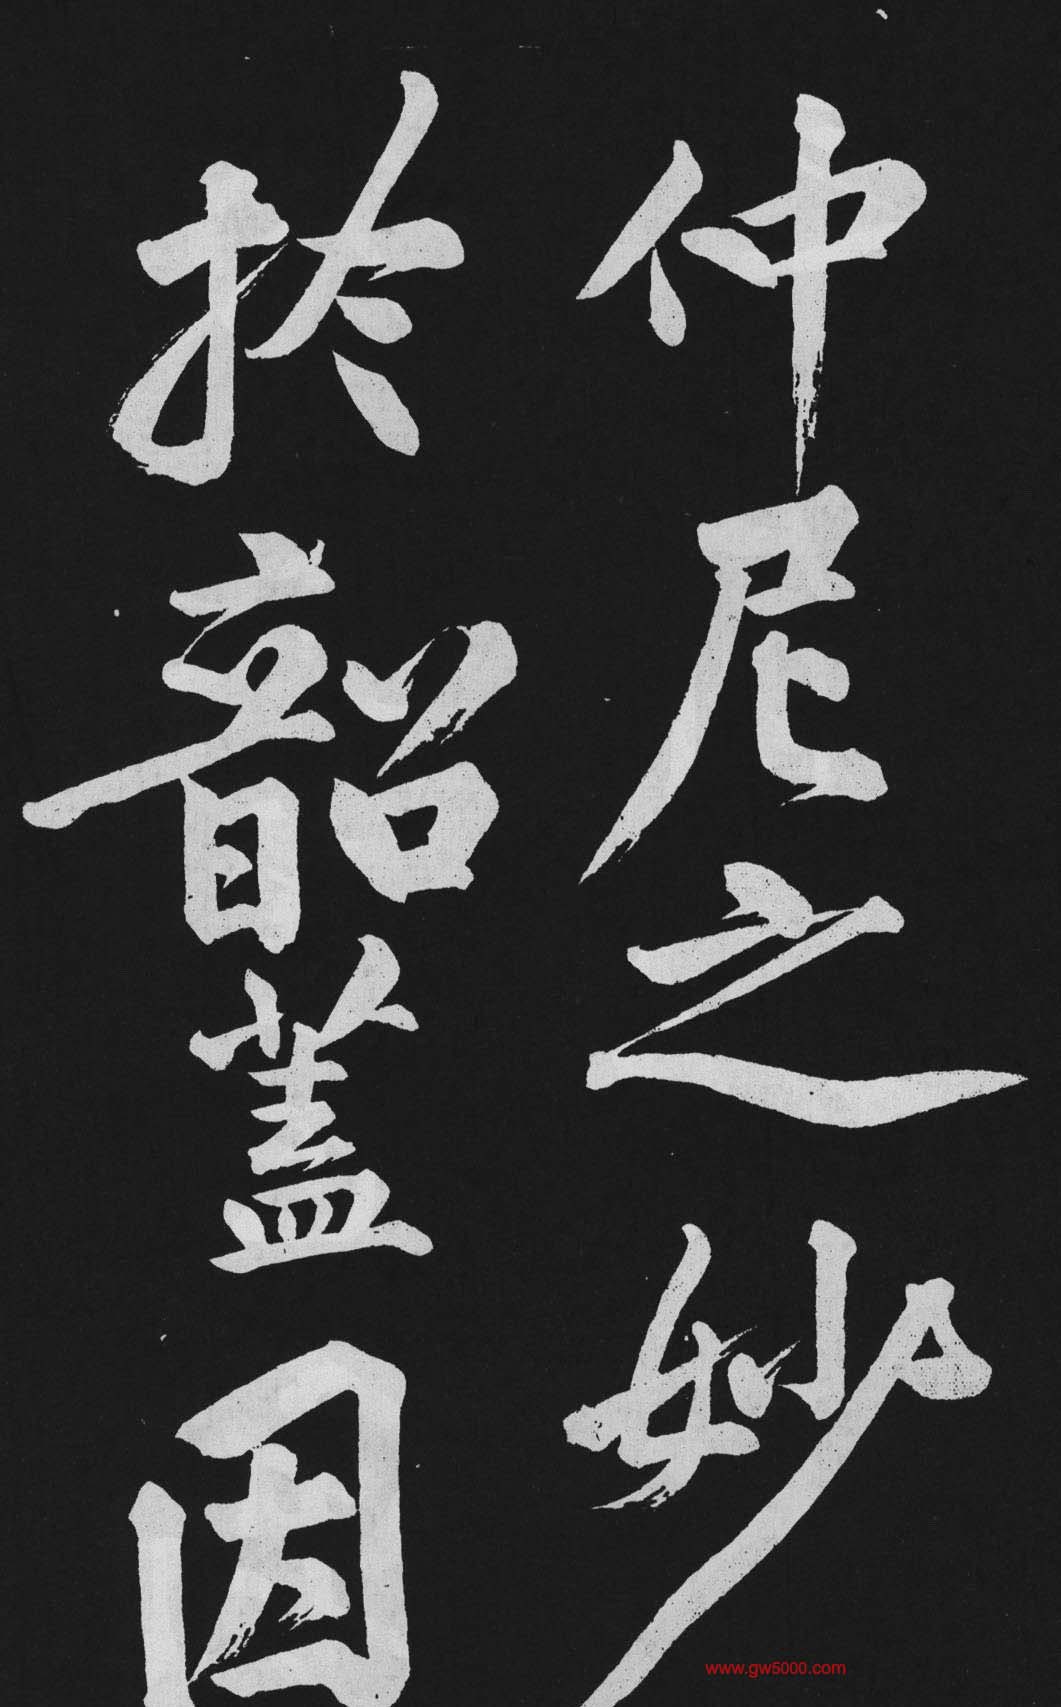 仲尼之妙
於韶蓋因
www.gw5000.com